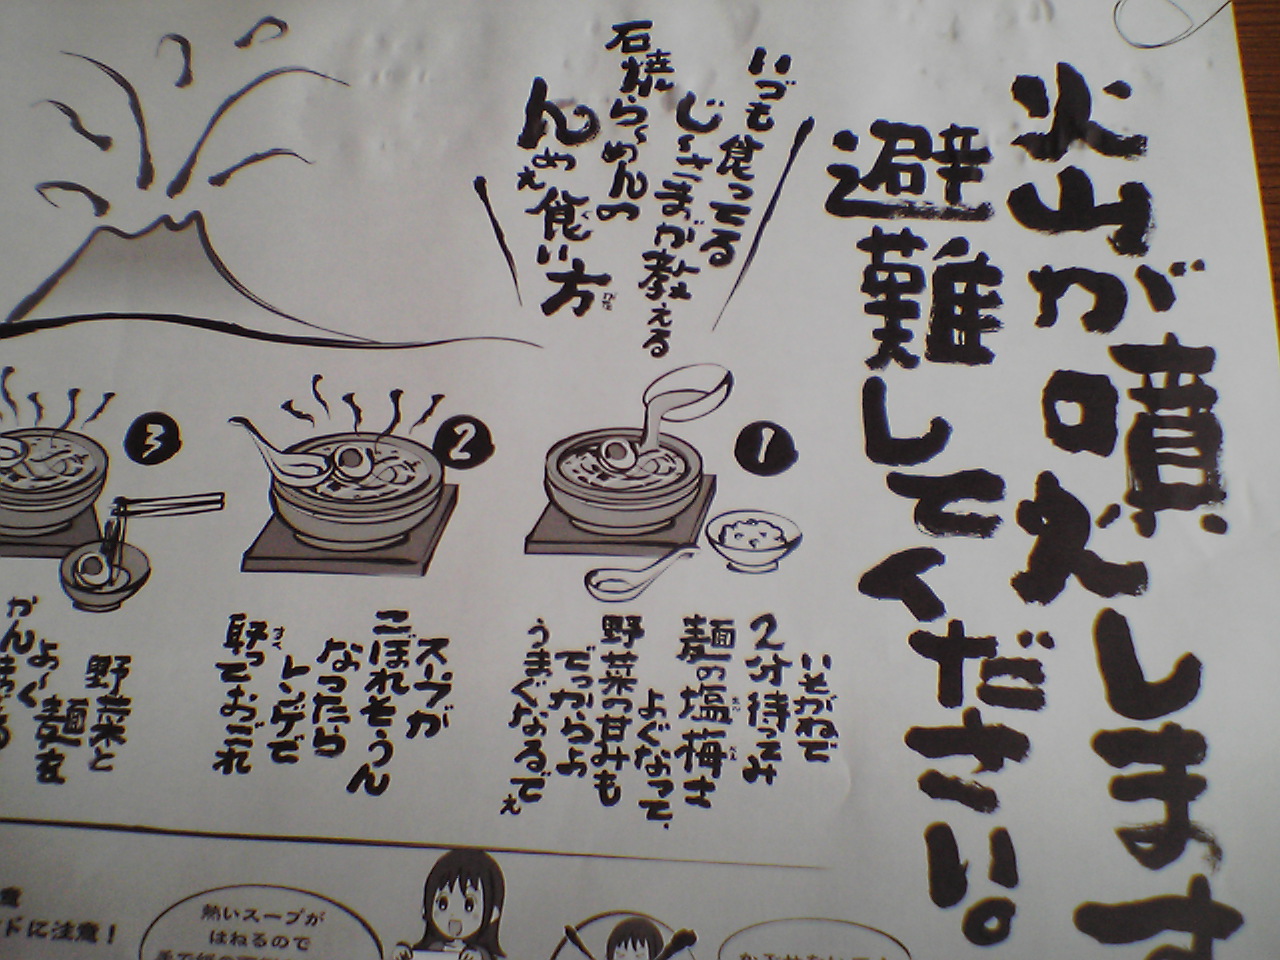 火山が噴火します
避難してください。
いつも食ってる
じさまが教える
石焼らーめんの
んめぇ食い方
1
いそがねで
2分待ってみ
麺の塩梅さ
よぐなって、
野菜の甘みも
でっからよ
うまぐなるでぇ
2
スープが
こぼれそうん
なったら
トンゲで
掬っておごれ
3
野菜と
麺を
よーく
に注意！
熱いスープが
はねるので